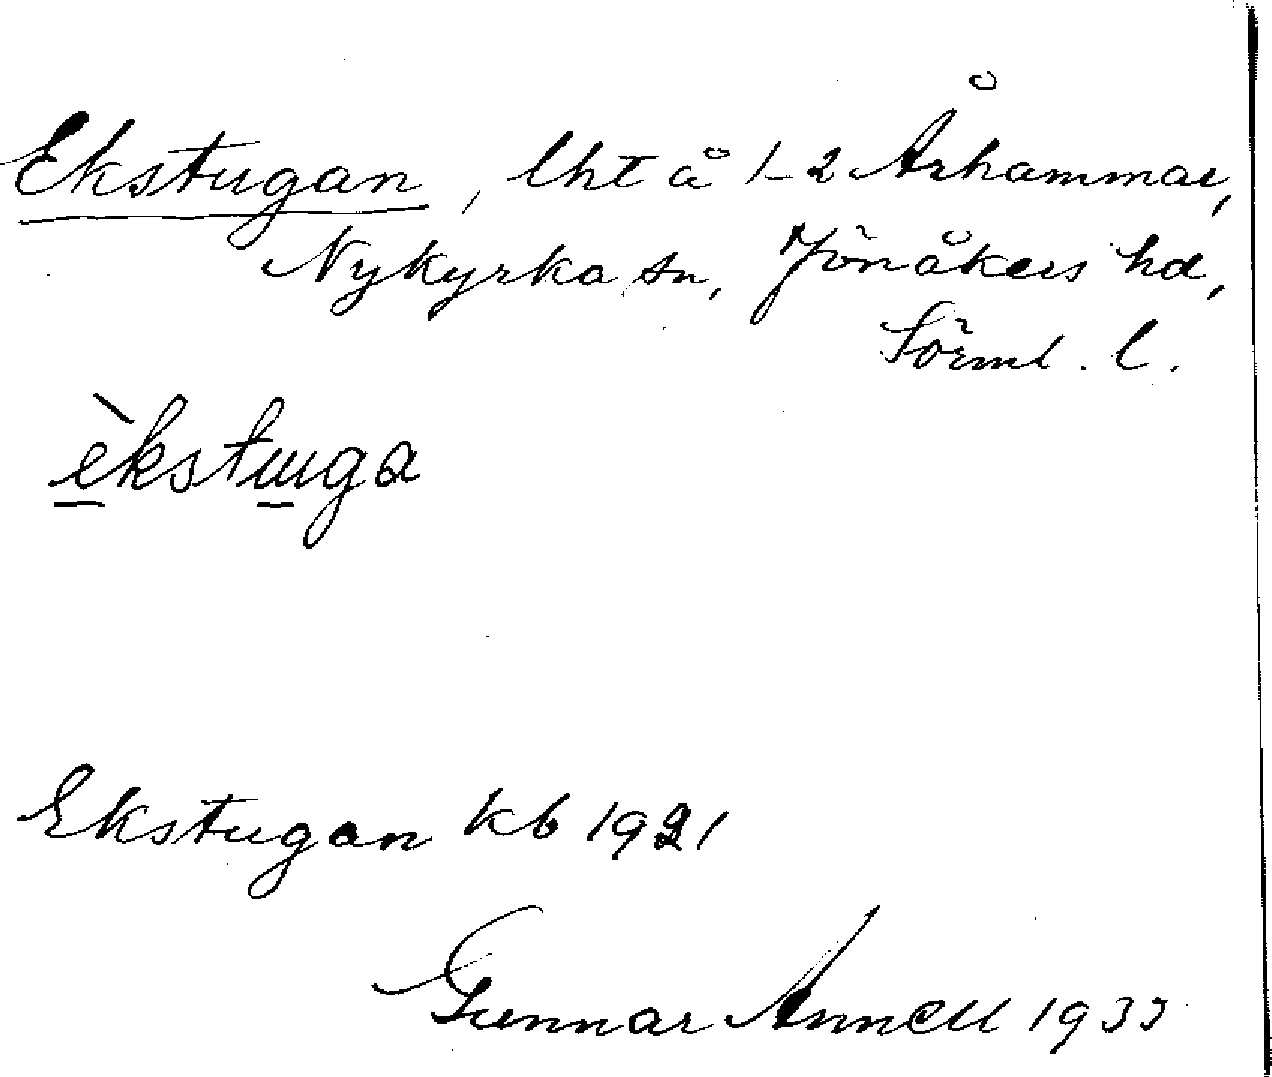 Ekstugan, lht å 1-2 Århammar,
Nykyrka sn, Jönåkers hd,
Sörml. l.
èkstɯga
Ekstugan kb 1921
Gunnar Annell 1933